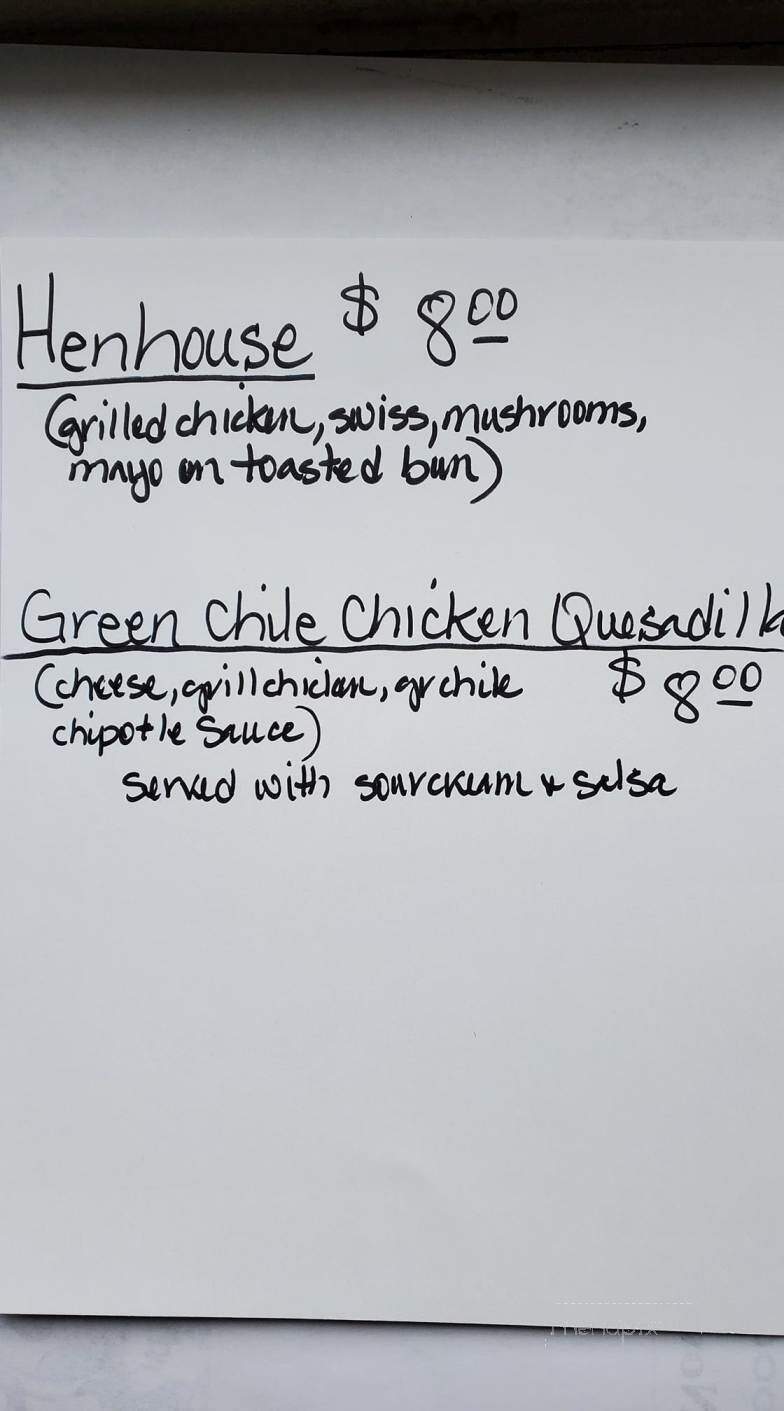 Henhouse $ 8.00
(grilled chicken, swiss, mushrooms,
mayo on toasted bun)
Green Chile Chicken Quesadilla
(cheese, grill chicken, gr chile $ 8.00
chipotle sauce)
served with sourcream + salsa